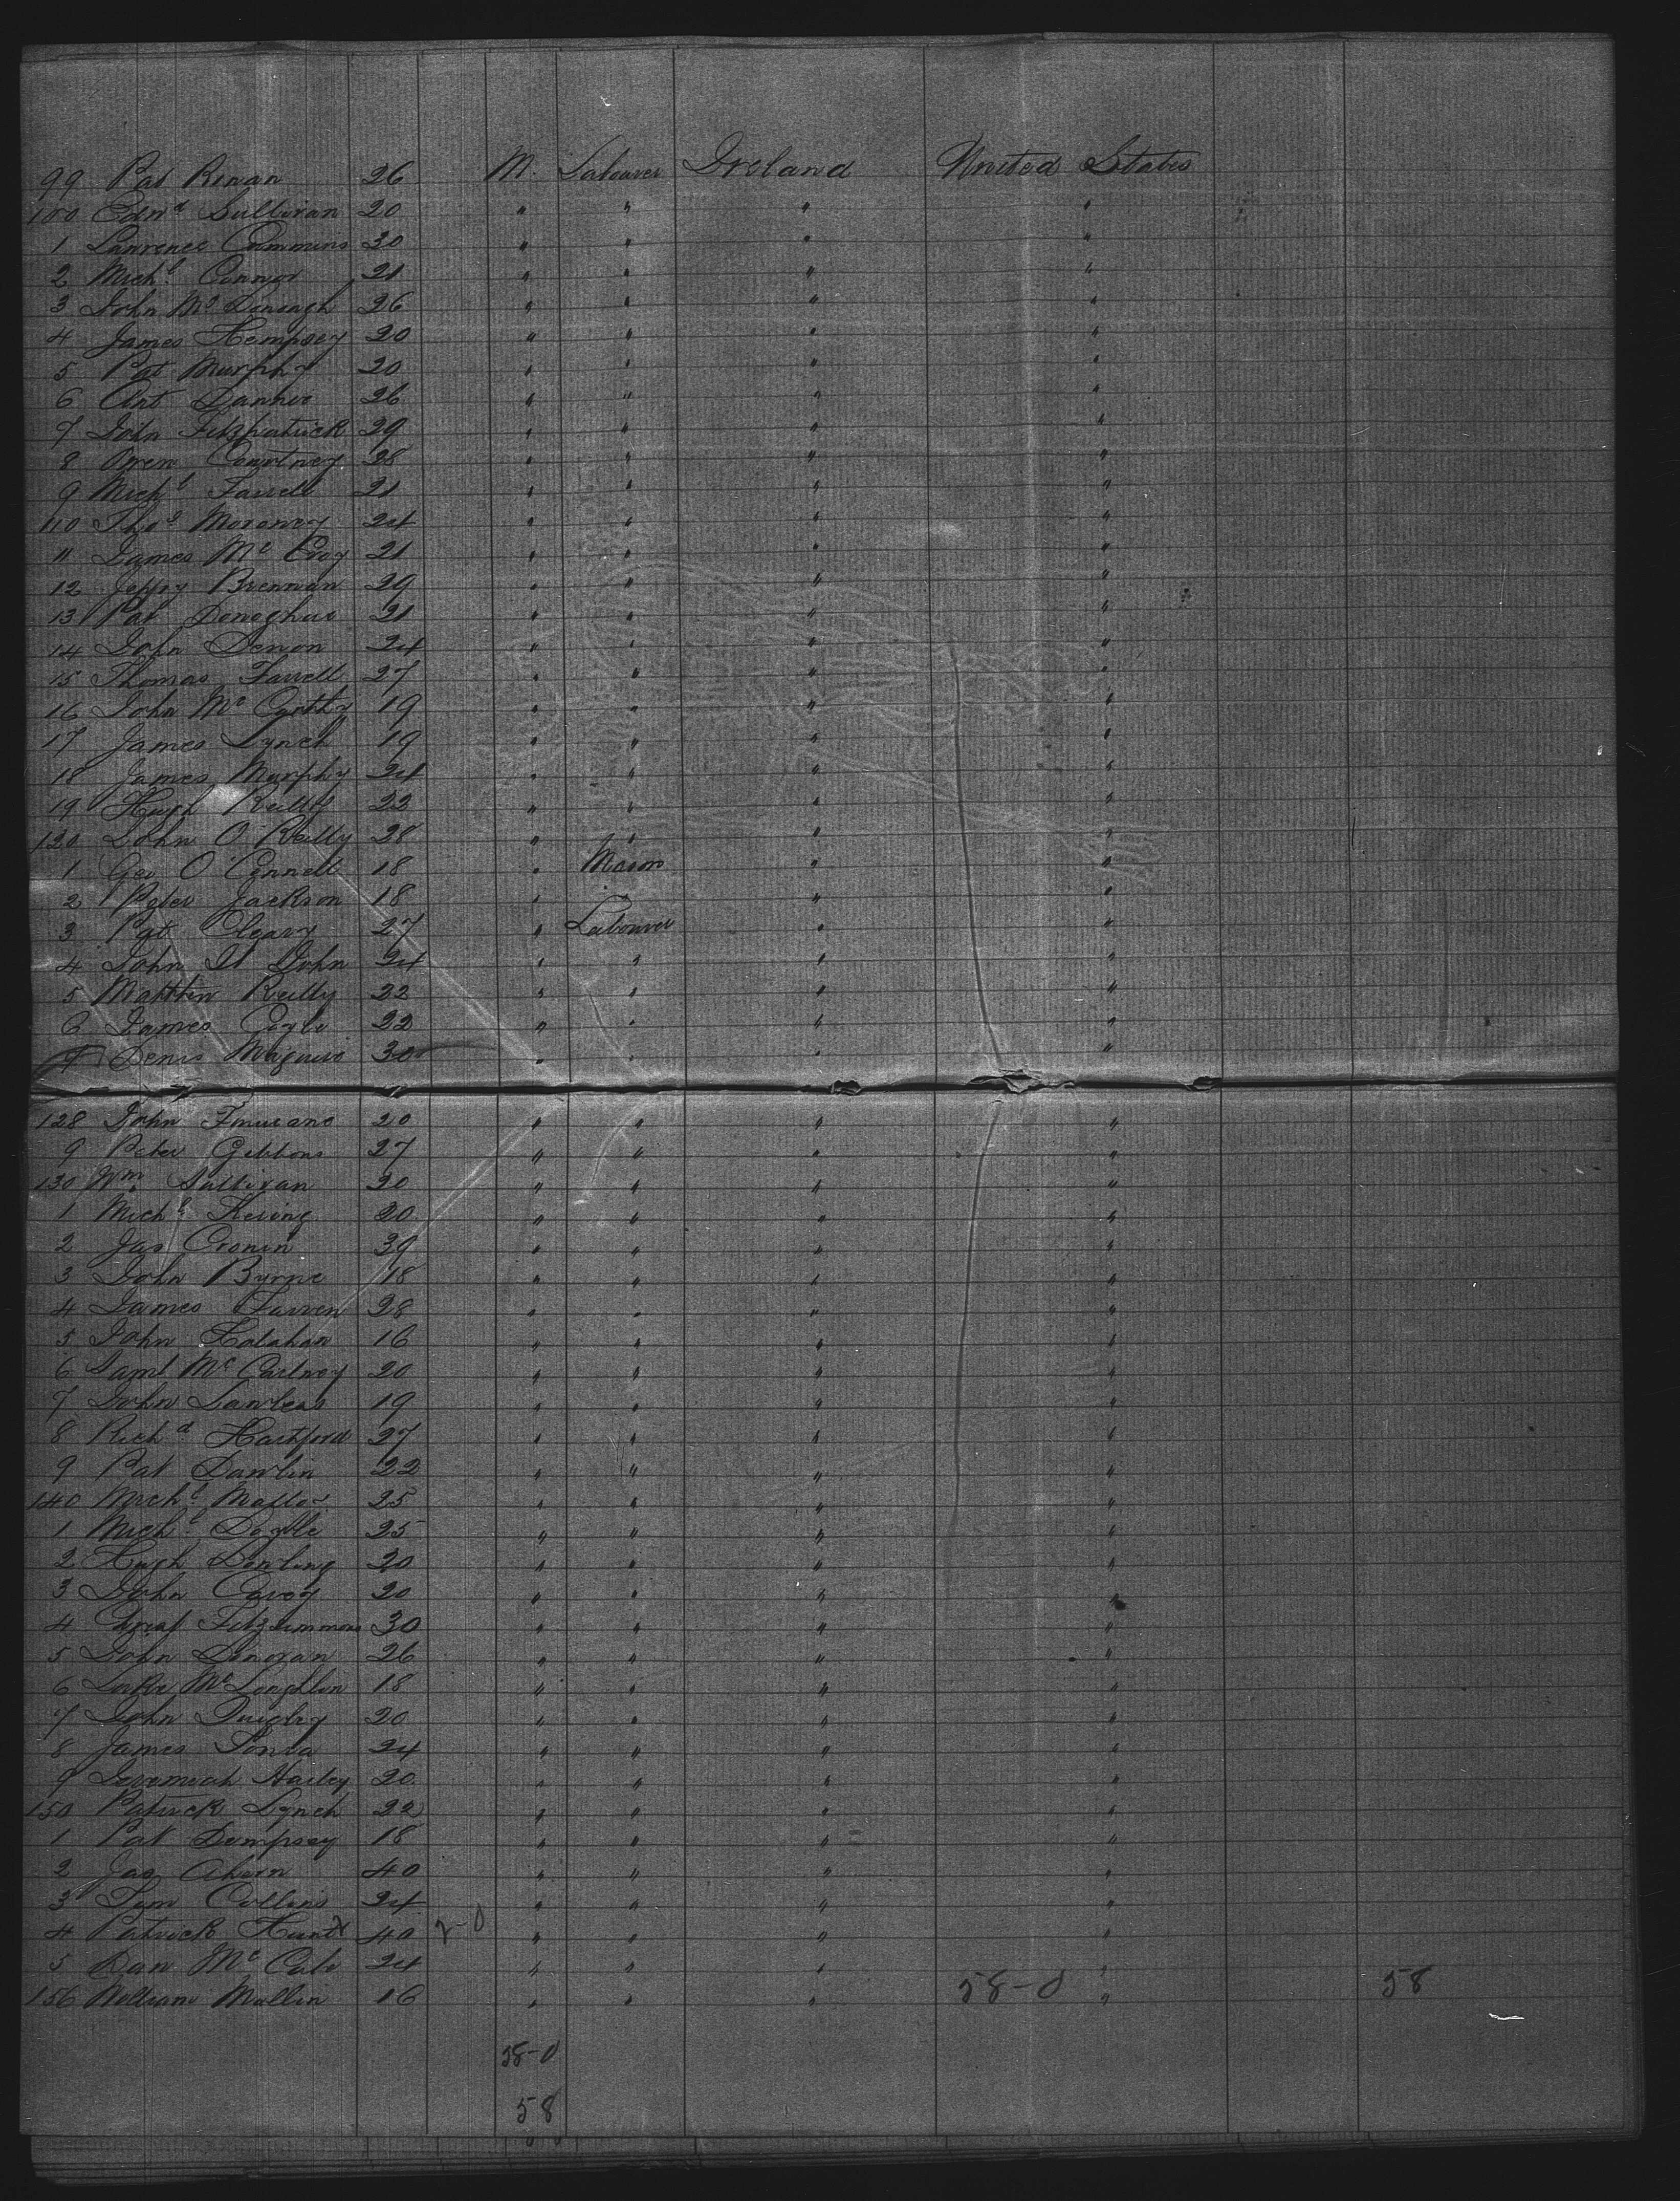 99 Pat Renan 26 M. Labourer Ireland United States
100 Edwd Sullivan 20 " " " "
1 Lawrence Cummins 30 " " " "
2 Michl Connor 21 " " " "
3 John Mc Donough 26 " " " "
4 James Hempsey 20 " " " "
5 Pat Murphy 20 " " " "
6 Ant 26 " " " "
7 John Fitzpatrick 29 " " " "
8 Owen Courtney 28 " " " "
9 Michl Farrell 21 " " " "
110 Thos Moroney 24 " " " "
11 James Mc Evoy 21 " " " "
12 Jeffry Brennan 29 " " " "
13 Pat Donoghue 21 " " " "
14 John 24 " " " "
15 Thomas Farrell 27 " " " "
16 John Mc Carthy 19 " " " "
17 James Lynch 19 " " " "
18 James Murphy 24 " " " "
19 Hugh Reilly 22 " " " "
120 John O'Reilly 28 " " " "
1 Geo O'Connell 18 " Mason " "
2 Peter Jackson 18 " " " "
3 Pat Cleary 27 " Labourer " "
4 John St John 24 " " " "
5 Matthew Reilly 22 " " " "
6 James 22 " " " "
7 Denis Maguire 30 " " " "
128 John Finucane 20 " " " "
9 Peter Gibbons 27 " " " "
130 Wm Sullivan 20 " " " "
1 Michl 20 " " " "
2 Jas Cronin 39 " " " "
3 John Byrne 18 " " " "
4 James Farren 28 " " " "
5 John Holahan 16 " " " "
6 Saml Mc Cartney 20 " " " "
7 John Lawless 19 " " " "
8 Richd Hartford 27 " " " "
9 Pat Dawlin 22 " " " "
140 Michl Malloy 25 " " " "
1 Michl Doyle 25 " " " "
2 Hugh Dowling 20 " " " "
3 John Carey 20 " " " "
4 Christ Fitzsimmons 30 " " " "
5 John Donovan 26 " " " "
6 Luke McLoughlin 18 " " " "
7 John Quigley 20 " " " "
8 James 24 " " " "
9 Jeremiah Hartey 20 " " " "
150 Patrick Lynch 22 " " " "
1 Pat Dempsey 18 " " " "
2 Jas Ahern 40 " " " "
3 Tim Collins 24 " " " "
4 Patrick Hunt 40 2-0 " " " "
5 Dan Mc Cabe 24 " " " "
156 William Mullin 16 " " " 58-0 " 58
58-0
58